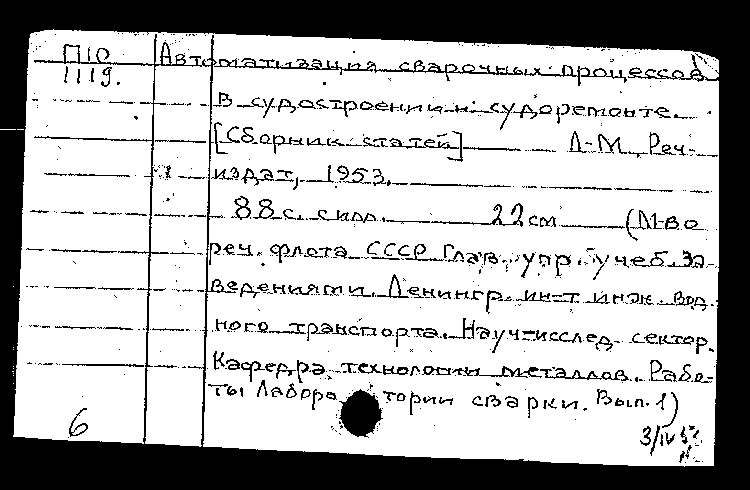 П10
1119.
Автоматизация сварочных процессов
в судостроении и судоремонте.
[Сборник статей] Л-М, Реч-
издат, 1953.
88 с. с илл. 22 см (М-во
реч. флота СССР Глав. упр. учеб. за-
ведениями. Ленингр. ин-т инж. вод-
ного транспорта. Науч-исслед. сектор.
Кафедра технологии металлов. Рабо-
ты Лабора тории сварки. Вып. 1)
6
3/IV